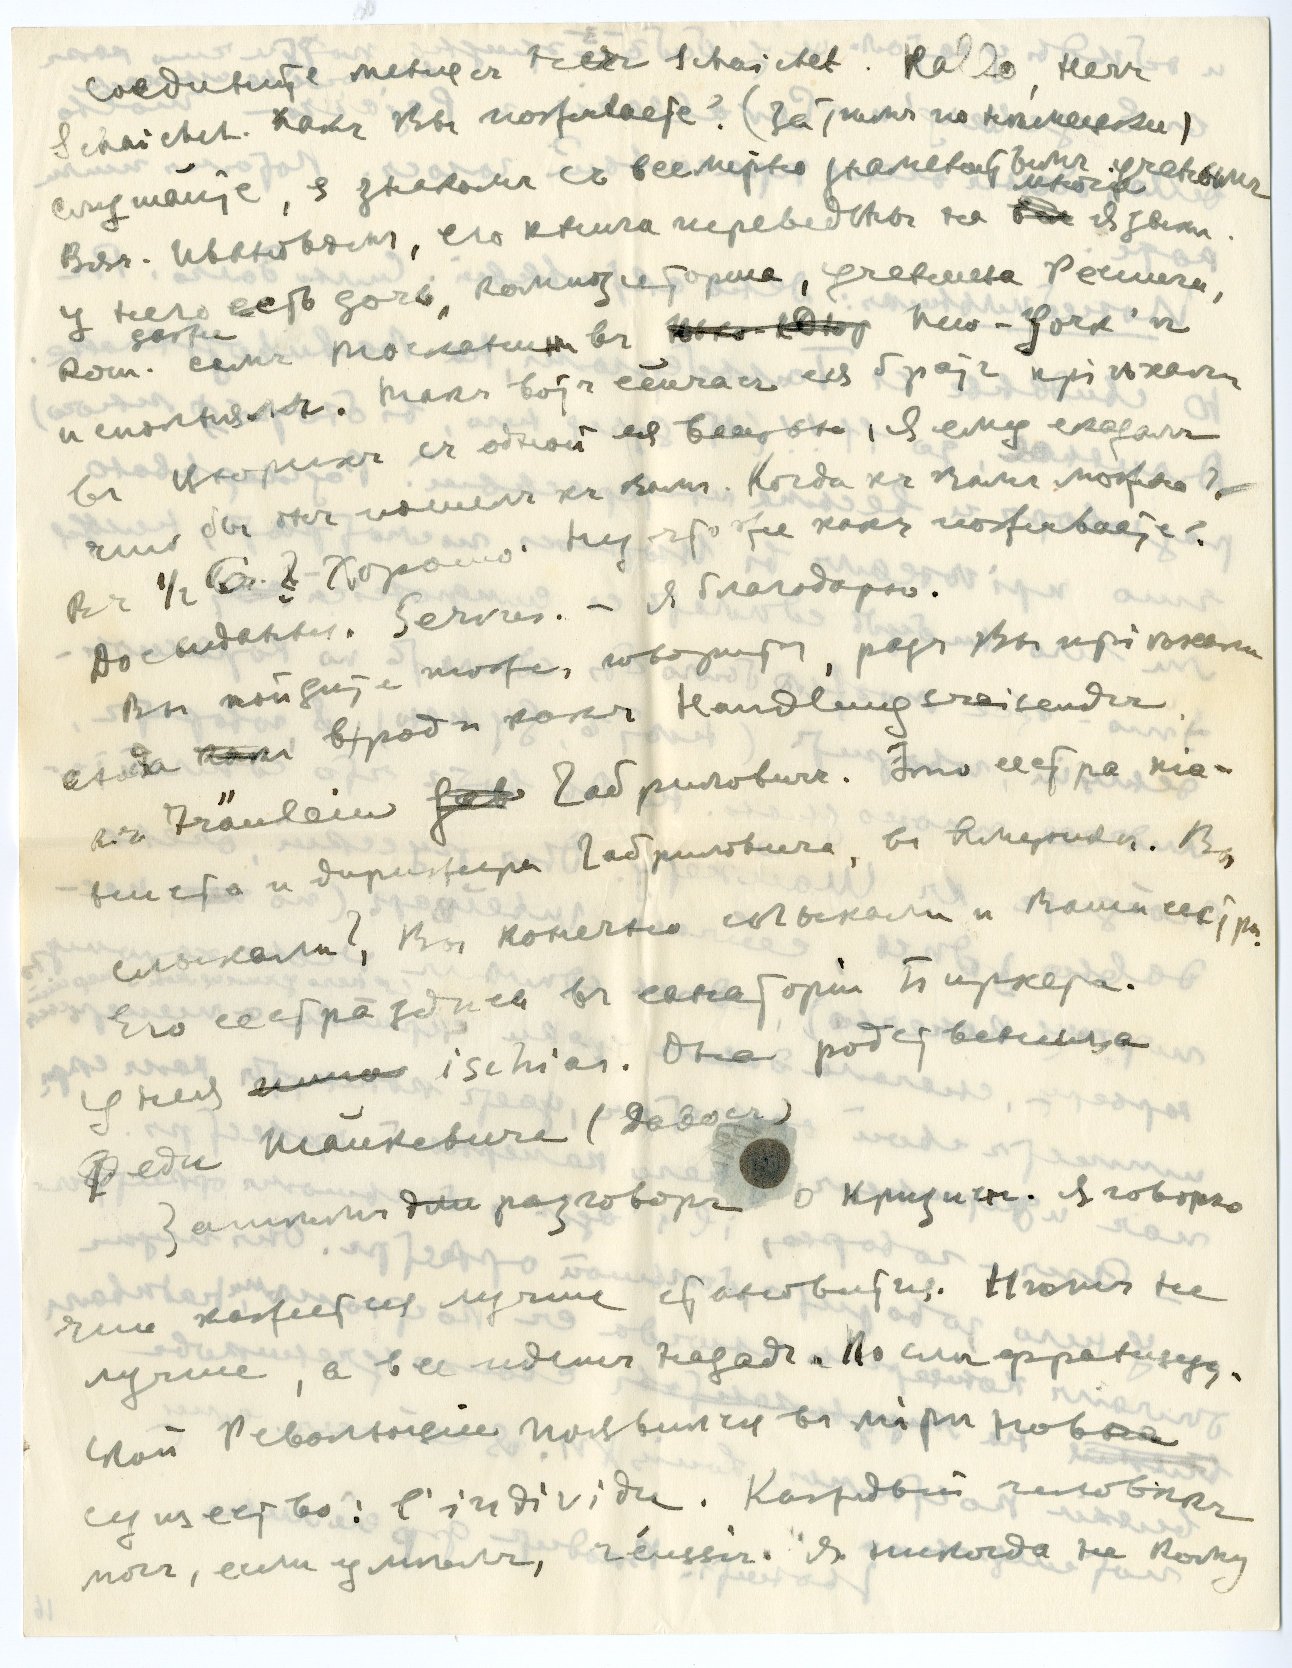 соедините меня съ Herr Schaichet. Hallo, Herr
Schaichet. Какъ Вы поживаете? (Затѣмъ по нѣмецки)
слушайте, я знакомъ съ всемірно знаменитымъ ученымъ
Вяч. Ивановымъ, его книги переведены на многіе языки.
У него есть дочь, композиторша, ученица Респиги,
кот. даже самъ Тосканини въ Нью-Іоркѣ
исполнялъ. Такъ вотъ сейчасъ ея братъ пріѣхалъ
въ Цюрихъ съ одной ея вещью, я ему сказалъ
что бы онъ пошелъ къ вамъ. Когда къ вамъ можно?
Въ 1/2 2? Хорошо. Ну что же какъ поживаете?
Досвиданья. Servus. – Я благодарю.
Вы пойдите тоже, говоритъ, разъ Вы пріѣхали
сюда вродѣ какъ Handlungsreisender
къ Fräulein Габриловичъ. Это сестра піа-
ниста и дирижера Габриловича, въ Америкѣ. Вы
слыхали?, Вы конечно слыхали и Вашей сестрѣ.
Его сестра здѣсь въ санаторіи Биркера.
У нея ischias. Она родственница
Феди Майкевича (Давосъ)
Зашелъ разговоръ о кризисѣ. Я говорю
что кажется лучше становится. Нѣтъ не
лучше, а все идетъ назадъ. Послѣ француз.
ской Революціи появился въ мірѣ
существо: l'individu. Каждый человѣкъ
могъ, если умѣлъ, réussir. Я никогда не